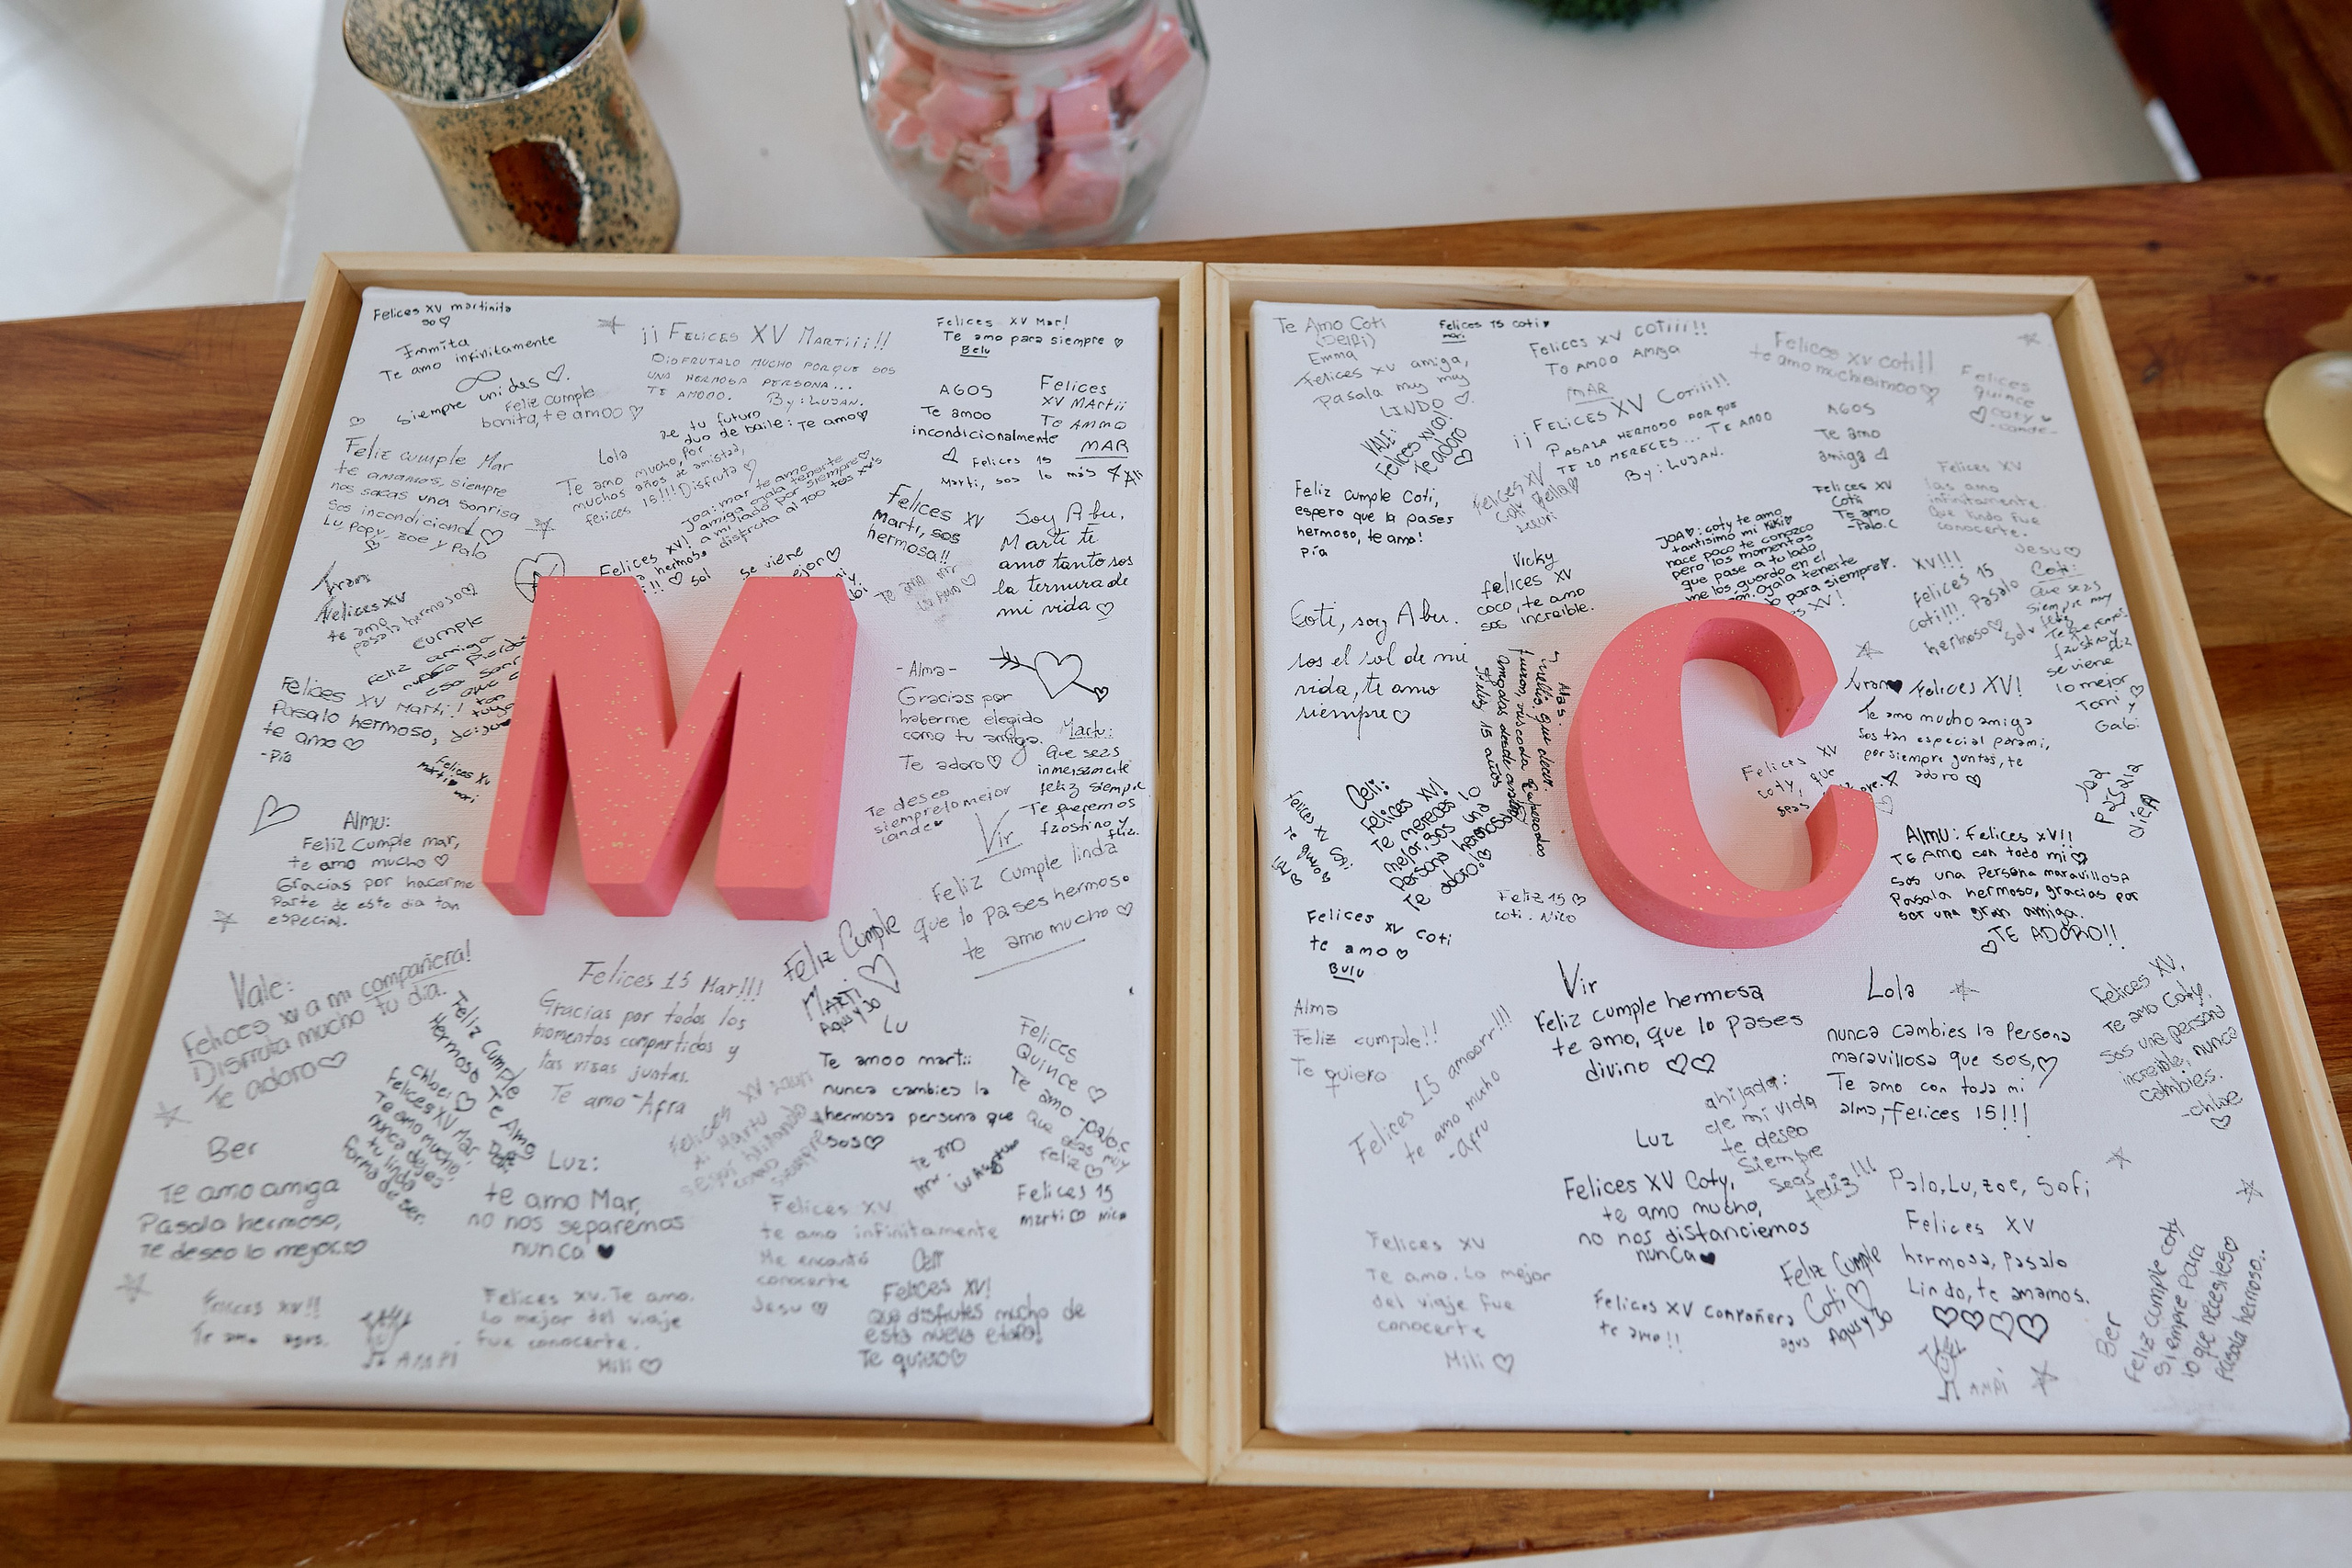 Felices XV martinita
Te amo infinitamente
Siempre unidas
Feliz cumple
bonita, te amoo
¡¡ FELICES XV MARTiii!!
DISFRUTALO MUCHO PORQUE SOS
UNA HERMOSA PERSONA...
TE AMOOO. By: LUJAN.
Felices XV Mar!
Te amo para siempre
Belu
AGOS
Te amoo
incondicionalmente
Felices
XV MArtii
Te AMMO
MAR
Felices 15
Marti, sos lo más
De tu futuro
duo de baile: Te amo
Lola
Te amo mucho, por
muchos años de amistad,
felices 15!!! Disfruta
Feliz cumple Mar
te amamos, siempre
nos sacas una sonrisa
Sos incondicional
Lu, Popy, zoe y Palo
Joa: mar te amo
amiga ojala tenerte
a mi lado por siempre
disfruta al 100 tos XV's
Felices XV
Marti, sos
hermosa!!
Soy Abu,
Marti te
amo tanto sos
la ternura de
mi vida
Felices XV!
hermosa
Sol
Se viene
Felices XV
te amo
pasala hermoso
Feliz cumple
amiga
Felices XV Marti!
Pasalo hermoso,
te amo
-Pía
Felices XV
marti
mari
-Alma-
Gracias por
haberme elegido
como tu amiga.
Te adoro
Martu:
Que seas
inmensamente
feliz siempre
Te queremos
faostino y
fliz.
Te deseo
siempre lo mejor
cande
Almu:
Feliz Cumple mar,
te amo mucho
Gracias por hacerme
Parte de este dia tan
especial.
Vir
Feliz cumple linda
que lo pases hermoso
te amo mucho
Feliz Cumple
MARTi
Agus y Jo
Vale:
Felices xv a mi compañera!
Disfruta mucho tu día.
Te adoro
Feliz Cumple
Hermosa
Te Amo
Felices 15 Mar!!!
Gracias por todos los
momentos compartidos y
las risas juntas.
Te amo -Afra
Lu
Te amoo marti:
nunca cambies la
hermosa persona que
sos
Felices
Quince
Te amo -paloc
que seas muy
feliz
Chloe:
Felices XV Mar,
Te amo mucho,
nunca dejes
tu linda
forma
de ser.
Ber
Te amo amiga
Pasala hermoso,
Te deseo lo mejor
Luz:
te amo Mar,
no nos separemos
nunca
te amo
mar.
Felices 15
marti nico
Felices XV
te amo infinitamente
Me encantó
conocerte
Jesu
Felices xv!!
Te amo agos.
AMPI
Felices xv. Te amo.
Lo mejor del viaje
fue conocerte.
Mili
Ceti
Felices XV!
que disfrutes mucho de
esta nueva etapa!
Te quiero
Te Amo Coti
(Delfi)
Emma
Felices XV amiga,
Pasala muy muy
LINDO
Felices 15 coti
mari
Felices XV cotiii!!
TO AMOO AMIGA
MAR
¡¡ FELICES XV Cotiii!!
PASALA HERMOSO POR QUE
TE LO MERECES... TE AMOO
By: LUJAN.
Felices xv coti!!
te amo muchisimoo
Felices
quince
coty
-cande-
VALE:
Felices XV co!
Te adoro
AGOS
Te amo
amiga
Feliz Cumple Coti,
espero que la pases
hermoso, te amo!
Pía
Felices XV
Coti bella
Felices XV
Coti
Te amo
-Palo.C
Felices XV
las amo
infinitamente.
Que lindo fue
conocerte.
Jesu
Vicky
felices XV
coco, te amo
sos increible.
JOA: coty te amo
tantisimo mi kiki
hace poco te conozco
pero los momentos
que pase a tu lado
me los guardo en el
ojala tenerte
para siempre.
XV!!!
Felices 15
Coti!!! Pasalo
hermoso
Sol
Coti:
Que seas
siempre muy
feliz
Te queremos!
faustino y
fliz
Se viene
lo mejor
Toni y
Gabi
Coti, soy Abu.
sos el sol de mi
vida, te amo
siempre
Felices XV!
Te amo mucho amiga
Sos tan especial para mi,
por siempre juntas, te
adoro
Felices XV
coty, que
seas
Ceti:
Felices XV!
Te mereces lo
mejor, sos una
persona hermosa
Te adoro!
Feliz 15
coti. Nico
Almu: Felices XV!!
TE AMO con todo mi
sos una Persona maravillosa
Pasala hermoso, gracias por
ser una gran amiga.
TE ADORO!!
Felices XV coti
te amo
Bulu
Alma
Feliz cumple!!
Te quiero
Felices 15 amoorr!!!
te amo mucho
-Afru
Vir
Feliz cumple hermosa
te amo, que lo pases
divino
Lola
nunca cambies la Persona
maravillosa que sos,
Te amo con toda mi
alma, felices 15!!!
Felices XV,
Te amo Coty,
Sos una persona
increible, nunca
cambies.
-chloe
ahijada:
de mi vida
te deseo
siempre
seas feliz!!!
Luz
Felices XV Coty,
te amo mucho,
no nos distanciemos
nunca
Palo, Lu, zoe, Sofi
Felices XV
hirmosa, Pasalo
Lindo, te amamos.
Felices XV
Te amo. Lo mejor
del viaje fue
conocerte
Mili
Felices XV compañera
te amo!!
agus
Feliz Cumple
Coti
Agus y Jo
AMPI
Ber
Feliz cumple coty
Siempre para
lo que necesites
Pasala hermoso..
M
C